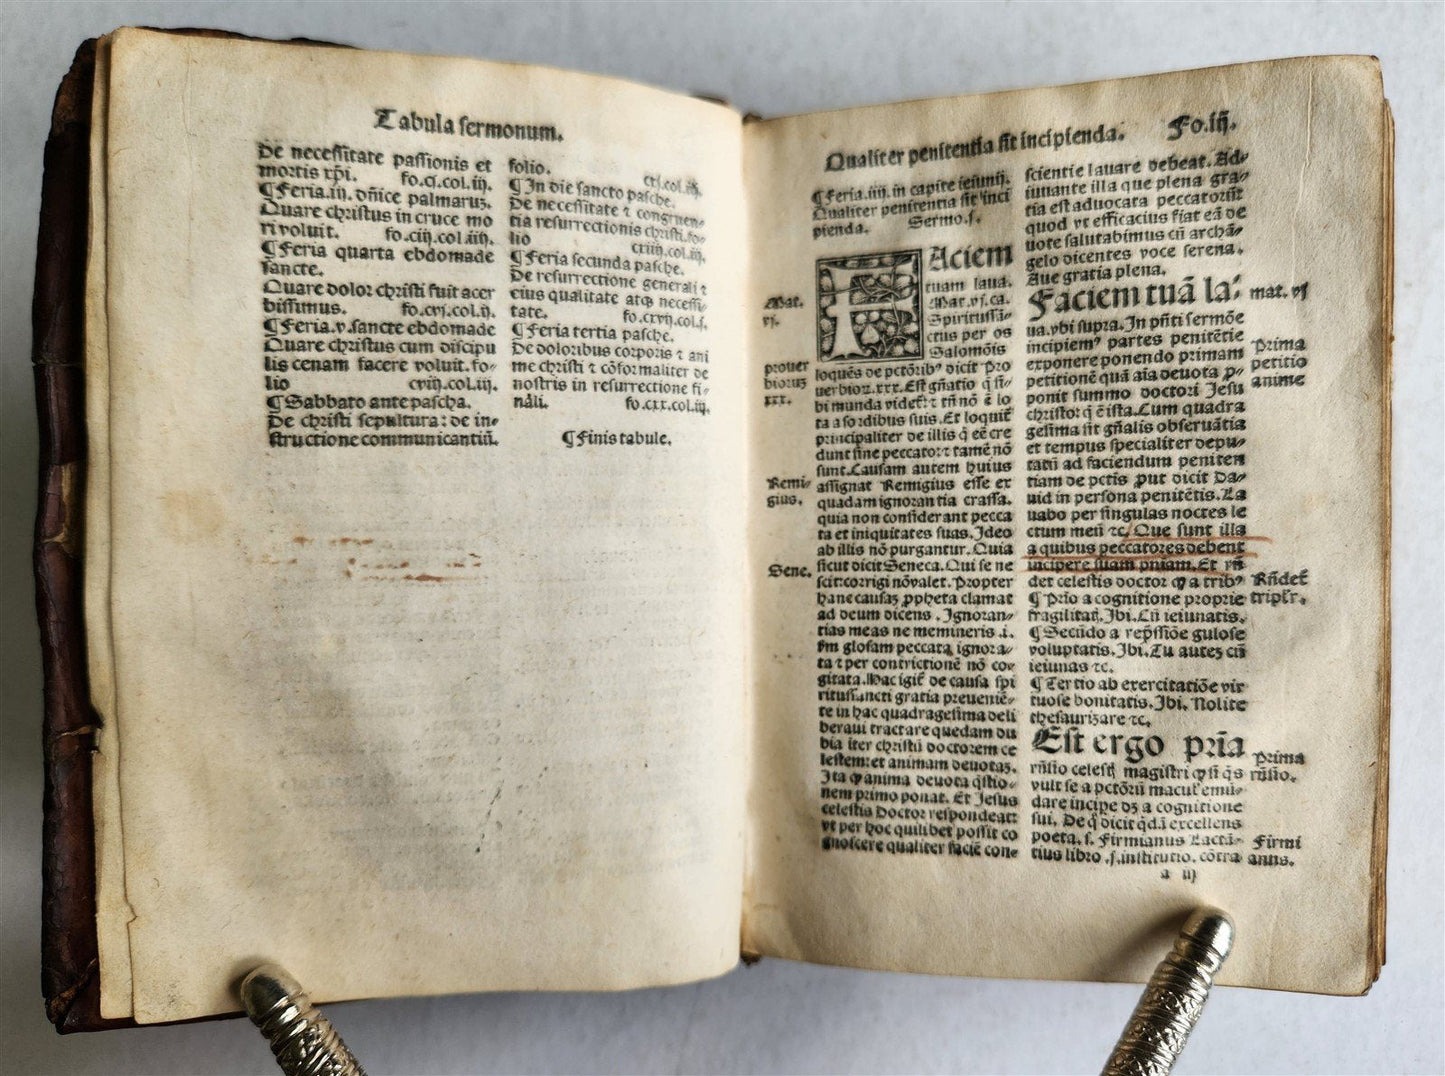 Tabula sermonum.
De necessitate passionis et
mortis xp̄i. fo.cj.col.iij.
¶ Feria.iij. dn̄ice palmaruꝫ.
Quare christus in cruce mo
ri voluit. fo.ciij.col.iiij.
¶ Feria quarta ebdomade
sancte.
Quare dolor christi fuit acer
bissimus. fo.cvj.col.ij.
¶ Feria.v.sancte ebdomade
Quare christus cum discipu
lis cenam facere voluit.fo-
lio cviij.col.iij.
¶ Sabbato ante pascha.
De christi sepultura: de in-
structione communicantiū.
folio. cxj.col.iij.
¶ In die sancto pasche.
De necessitate ⁊ congruen-
tia resurrectionis christi.fo-
lio cxiiij.col.iij.
¶ Feria secunda pasche.
De resurrectione generali ⁊
eius qualitate atqꝫ necessi-
tate. fo.cxvij.col.j.
¶ Feria tertia pasche.
De doloribus corporis ⁊ ani
me christi ⁊ cōformaliter de
nostris in resurrectione fi-
nali. fo.cxx.col.iij.
¶ Finis tabule.
Qualiter penitentia sit incipienda. Fo.iij.
¶ Feria.iiij. in capite ieiunij.
Qualiter penitentia sit inci
pienda. Sermo.j.
FAciem
tuam laua.
Mat.vj.ca.
Spiritussā-
ctus per os
Salomōis
loquēs de pctōribꝰ dicit Pro
uerbioꝝ.xxx. Est gn̄atio q̄ si-
bi munda videt᷑: ⁊ tn̄ nō ē lo
ta a sordibus suis. Et loquit᷑
principaliter de illis q̄ eē cre
dunt sine peccato: ⁊ tamē nō
sunt. Causam autem huius
assignat Remigius esse ex
quadam ignorantia crassa.
quia non considerant pecca
ta et iniquitates suas. Ideo
ab illis nō purgantur. Quia
sicut dicit Seneca. Qui se ne
scit: corrigi nō valet. Propter
hanc causaꝫ ꝓpheta clamat
ad deum dicens. Ignoran-
tias meas ne memineris .i.
fm glosam peccata ignora-
ta ⁊ per contrictionē nō co-
gitata. Hac igit᷑ de causa spi
ritussancti gratia preueniē-
te in hac quadragesima deli
beraui tractare quedam du
bia iter christū doctorem ce
lestem: et animam deuotaꝫ.
Ita ꝙ anima deuota q̄stio-
nem primo ponat. Et Jesus
celestis Doctor respondeat:
vt per hoc quilibet possit co
gnoscere qualiter faciē con-
Mat.
vj.
prouer
biorū
xxx.
Remi-
gius.
Sene.
scientie lauare debeat. Ad-
iuuante illa que plena gra-
tia est aduocata peccatorū:
quod vt efficacius fiat eā de
uote salutabimus cū archā-
gelo dicentes voce serena.
Aue gratia plena.
Faciem tuā la:
ua. vbi supra. In pn̄ti sermōe
incipiemꝰ partes penitētie
exponere ponendo primam
petitionē quā aīa deuota ꝓ-
ponit summo doctori Jesu
christo: q̄ ē ista. Cum quadra
gesima sit gn̄alis obseruātia
et tempus specialiter depu-
tatū ad faciendum peniten
tiam de pctīs ꝓut dicit Da-
uid in persona penitētis. La
uabo per singulas noctes le
ctum meū ⁊c. Que sunt illa
a quibus peccatores debent
incipere suam pniam. Et rn̄
det celestis doctor ꝙ a tribꝰ
¶ Prīo a cognitione proprie
fragilitatꝭ. Ibi. Cū ieiunatis.
¶ Secūdo a rep̄ssiōe gulose
voluptatis. Ibi. Tu auteꝫ cū
ieiunas ⁊c.
¶ Tertio ab exercitatiōe vir
tuose bonitatis. Ibi. Nolite
thesaurizare ⁊c.
Est ergo prīa
rn̄sio celestꝭ magistri ꝙ si q̄s
vult se a pctōrū macul᷑ emū-
dare incipe dꝫ a cognitione
sui. De q̄ dicit qd̄ā excellens
poeta. s. Firmianus Lactā-
tius libro .j. institutio. cōtra
a iij
mat. vj
Prima
petitio
anime
Rn̄det
tripl᷑r.
Prima
rn̄sio.
Firmi
anus.